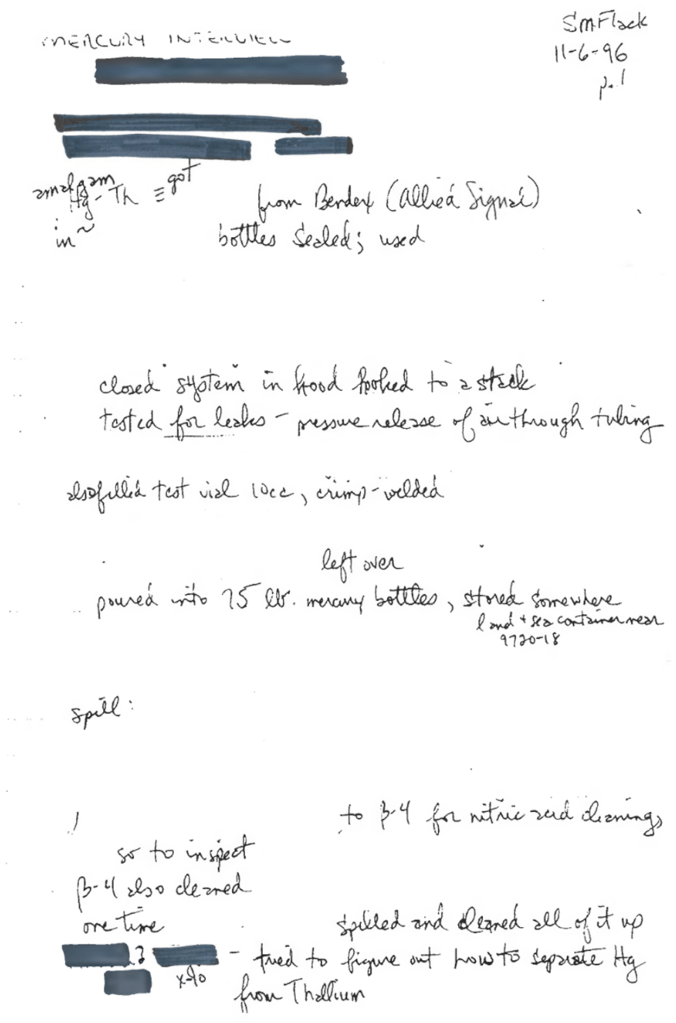 SMFlack
MERCURY INTERVIEW
11-6-96
p.1
amalgam
Hg-Th ≡ got from Bendex (Allied Signal)
in ~ bottles sealed; used
closed system in hood hooked to a stack
tested for leaks - pressure release of air through tubing
also filled test vial 10cc, crimp-welded
left over
poured into 75 lb. mercury bottles, stored somewhere
land + sea container near
9720-18
spill:
to β-4 for nitric acid cleanings
so to inspect
β-4 also cleaned
one time spilled and cleaned all of it up
? - tried to figure out how to separate Hg
from Thallium